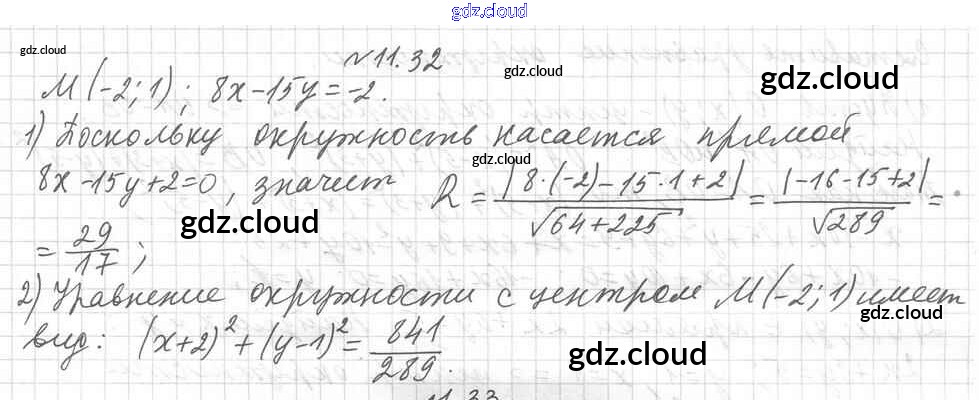 gdz.cloud
gdz.cloud
№11.32
gdz.cloud
gdz.cloud
M(-2;1); 8x-15y=-2.
1) Поскольку окружность касается прямой
gdz.cloud
8x-15y+2=0, значит R = |8·(-2)-15·1+2| / √64+225 = |-16-15+2| / √289 =
gdz.cloud
= 29/17;
2) Уравнение окружности с центром M(-2;1) имеет
gdz.cloud
вид: (x+2)²+(y-1)²= 841/289.
gdz.cloud
11.33